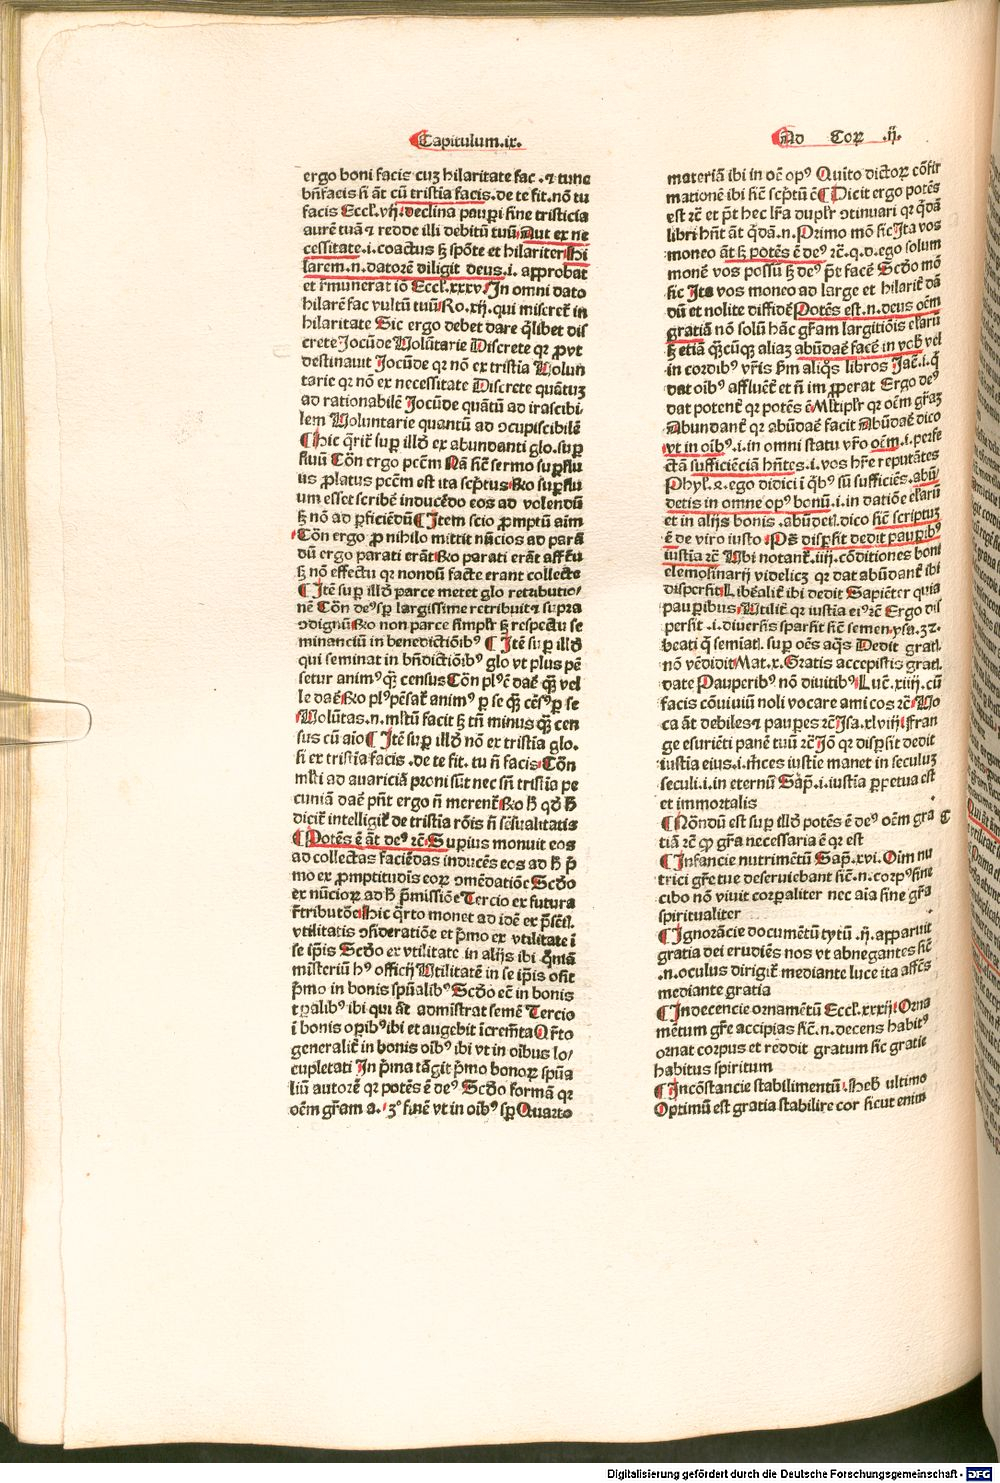 Capitulum.ix.
ergo boni facis cuz hilaritate fac .⁊ tunc
bñfacis si āt cū tristia facis.de te fit.nō tu
facis Eccl.vij.declina pauperi sine tristicia
aurē tuā ⁊ redde illi debitū tuū Aut ex ne
cessitate.i.coactus ꝫ spōte et hilariter Hi
larem.n.datorē diligit deus.i. approbat
et rēmunerat iō Eccl.xxxv. In omni dato
hilarē fac vultū tuū Ro.xij.qui miscret̄ in
hilaritate Sic ergo debet dare q̄libet dis
crete Jocūde Volūtarie Discrete qꝛ ꝓut
destinauit Jocūde qꝛ nō ex tristia Volun
tarie qꝛ nō ex necessitate Discrete quātuz
ad rationabilē Jocūde quātū ad irascibi
lem Voluntarie quantū ad ↄcupiscibilē
¶ Hic q̄rit̄ suꝑ illd̄ ex abundanti glo.suꝑ
fluū Cōn ergo pcēm Nā sic̄ sermo suꝑflu
us ꝓlatus pcēm est ita scp̄tus Ro suꝑflu
um esset scribē inducēdo eos ad volendū
ꝫ nō ad ꝑficiēdū ¶ Item scio ꝓmptū aim̄
Cōn ergo ꝓ nihilo mittit nūcios ad parā
dū ergo parati erāt Ro parati erāt affc̄tu
ꝫ nō effectu qꝛ nondū facte erant collecte
¶ Itē suꝑ illd̄ parce metet glo retributio/
nē Cōn deꝰ sꝑ largissime retribuit ⁊ supra
ↄdignū Ro non parce simplr̄ ꝫ respectu se
minanciū in benedictiōibꝰ ¶ Itē suꝑ illd̄
qui seminat in bn̄dictiōibꝰ glo vt plus pē
setur animꝰ qꝫ̄ census Cōn plꝰ ē daē qꝫ̄ vel
le daē Ro plꝰ pēsat̄ animꝰ ꝑ se qꝫ̄ cēsꝰ ꝑ se
Volūtas.n.mltū facit ꝫ tn̄ minus qꝫ̄ cen
sus cū aīo ¶ Itē suꝑ illd̄ nō ex tristia glo.
si ex tristia facis .de te fit. tu n̄ facis Cōn
ml̄ti ad auariciā proni sūt nec sn̄ tristia pe
cuniā daē pn̄t ergo n̄ merent̄ Ro ꝧ qd̄ ꝧ
dicit̄ intelligit̄ de tristia rōis n̄ sēsualitatis
¶ Potēs ē āt deꝰ rc̄ Superius monuit eos
ad collectas faciēdas inducēs eos ad ꝧ p̄
mo ex ꝓmptitudīs eoꝝ ↄmēdatiōe Scd̄o
ex nūcioꝝ ad ꝧ p̄missiōe Tercio ex futura
r̄tributōe Hic q̄rto monet ad idē ex p̄sēt̄.
vtilitatis ↄsideratiōe et p̄mo ex vtilitate ī
se ip̄is Scd̄o ex vtilitate in alijs ibi qm̄
misteriū hꝰ officij Vtilitatē in se ip̄is ost̄t
p̄mo in bonis spūalibꝰ Scd̄o ec̄ in bonis
tꝑalibꝰ ibi qui āt admistrat semē Tercio
ī bonis oꝑibꝰ ibi et augebit īcrem̄ta Qr̄to
generalit̄ in bonis oībꝰ ibi vt in oībus lo/
cupletati In p̄ma tāgit p̄mo bonoꝝ spūa
liū autorē qꝛ potēs ē deꝰ Scd̄o formā qꝛ
oēm gr̄am a. 3º finē vt in oībꝰ sꝑ Quarto
Ad Coꝝ .ij.
materiā ibi in oē opꝰ Quito dictoꝝ cōfir
mationē ibi sic̄ scp̄tū ē ¶ Dicit ergo potēs
est rc̄ et p̄t hec lr̄a duplr̄ ↄtinuari qꝛ q̄dā
libri hn̄t āt q̄dā.n. Primo mō sic Ita vos
moneo āt ꝫ potēs ē deꝰ rc̄.q.d.ego solum
monē vos possū ꝫ deꝰ p̄t facē Scd̄o mō
sic Ita vos moneo ad large et hilarit̄ dā
dū et nolite diffidē Potēs est.n.deus oēm
gratiā nō solū hāc gr̄am largitiōis elaꝝ
ꝫ etiā qꝫ̄cūqꝫ aliaꝫ abūdaē facē in vob̄ vel
in cordibꝰ vr̄is p̄m aliq̄s libros Jac̄.i.q̄
dat oībꝰ affluēt̄ et n̄ im ꝓperat Ergo deꝰ
dat potent̄ qꝛ potēs ē Ml̄tiplr̄ qꝛ oēm gr̄aꝫ
Abundant̄ qꝛ abūdaē facit Abūdaē dico
vt in oībꝰ.i.in omni statu vr̄o oēm.i.perfe
ctā sufficiēciā hn̄tes.i.vos hr̄e reputātes
Phyl.2.ego didici ī q̄bꝰ sū sufficiēs.abū
detis in omne opꝰ bonū.i.in datiōe elaꝝ
et in alijs bonis .abūdet̄.dico sic̄ scriptuꝫ
ē de viro iusto Pō dispersit dedit pauperibꝰ
iustia rc̄ Vbi notant̄.iiij.cōditiones boni
elemosinarij videlicꝫ qꝛ dat abūdant̄ ibi
disꝑsit Liberalit̄ ibi dedit Sapiēter quia
pauperibus Vtilit̄ qꝛ iustia eiꝰ rc̄ Ergo dis
persit .i.diuersis sparsit sic̄ semen ysa.32.
beati q̄ semīat̄.suꝑ oēs aq̄s Dedit grat̄.
nō vēdidit Mat.x.Gratis accepistis grat̄.
date Pauperibꝰ nō diuitibꝰ Luc̄.xiiij.cū
facis cōuiuiū noli vocare amicos rc̄ Vo
ca āt debiles ⁊ pauperes rc̄ Isa.xlviij.fran
ge esuriēti panē tuū rc̄ Jō qꝛ dispersit dedit
iustia eius.i.m̄ces iustie manet in seculuꝫ
seculi.i.in eternū Sap̄.i.iustia ꝑpetua est
et immortalis
¶ Nōndū est suꝑ illd̄ potēs ē deꝰ oēm gra
tiā rc̄ ꝙ gr̄a necessaria ē qꝛ est
¶ Infancie nutrimētū Sap̄.xvi. Oīm nu
trici gr̄e tue deseruiebant sic̄.n.corpꝰ sine
cibo nō viuit corꝑaliter nec aīa sine gr̄a
spiritualiter
¶ Ignorācie documētū tytū .ij.apparuit
gratia dei erudiēs nos vt abnegantes sic̄
.n.oculus dirigit̄ mediante luce ita affc̄s
mediante gratia
¶ Indecencie ornamētū Eccl.xxxij. Orna
mētum gr̄e accipias sic̄.n.decens habitꝰ
ornat corpus et reddit gratum sic gratie
habitus spiritum
¶ Incōstancie stabilimentū .Heb̄ vltimo
Optimū est gratia stabilire cor sicut enim
Digitalisierung gefördert durch die Deutsche Forschungsgemeinschaft - DFG